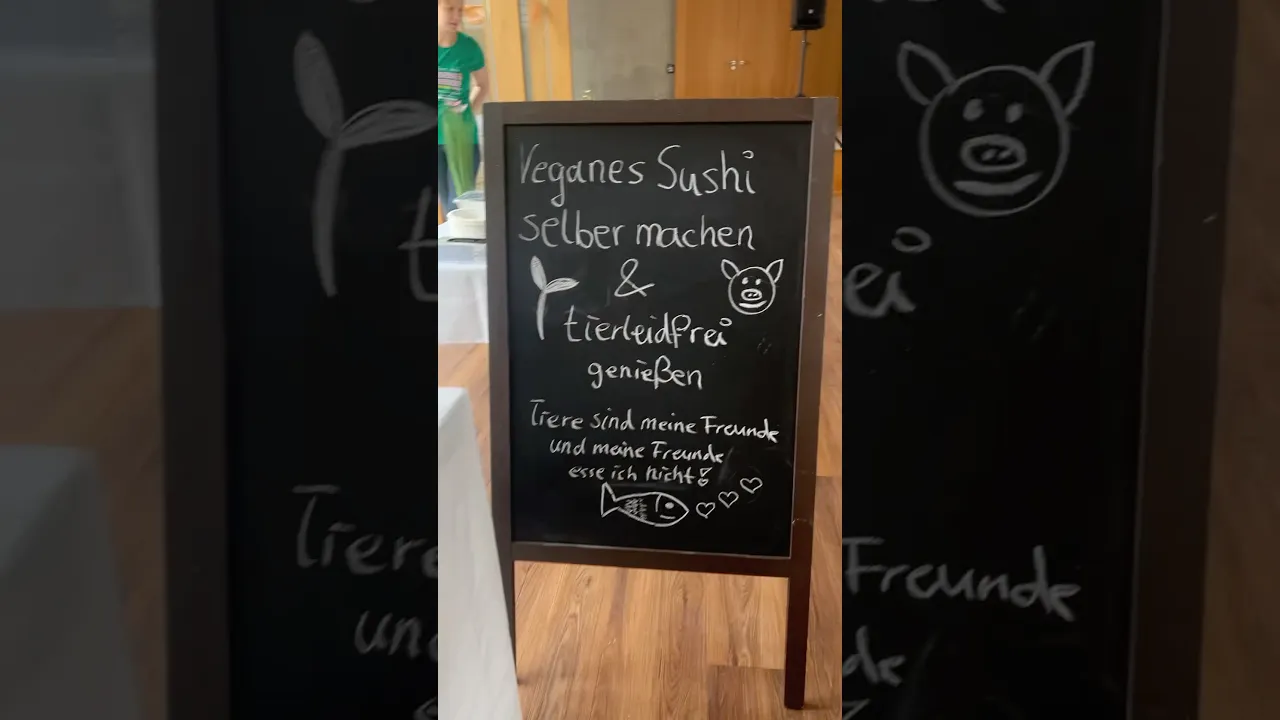 Veganes Sushi
selber machen
&
tierleidfrei
genießen
Tiere sind meine Freunde
und meine Freunde
esse ich nicht!